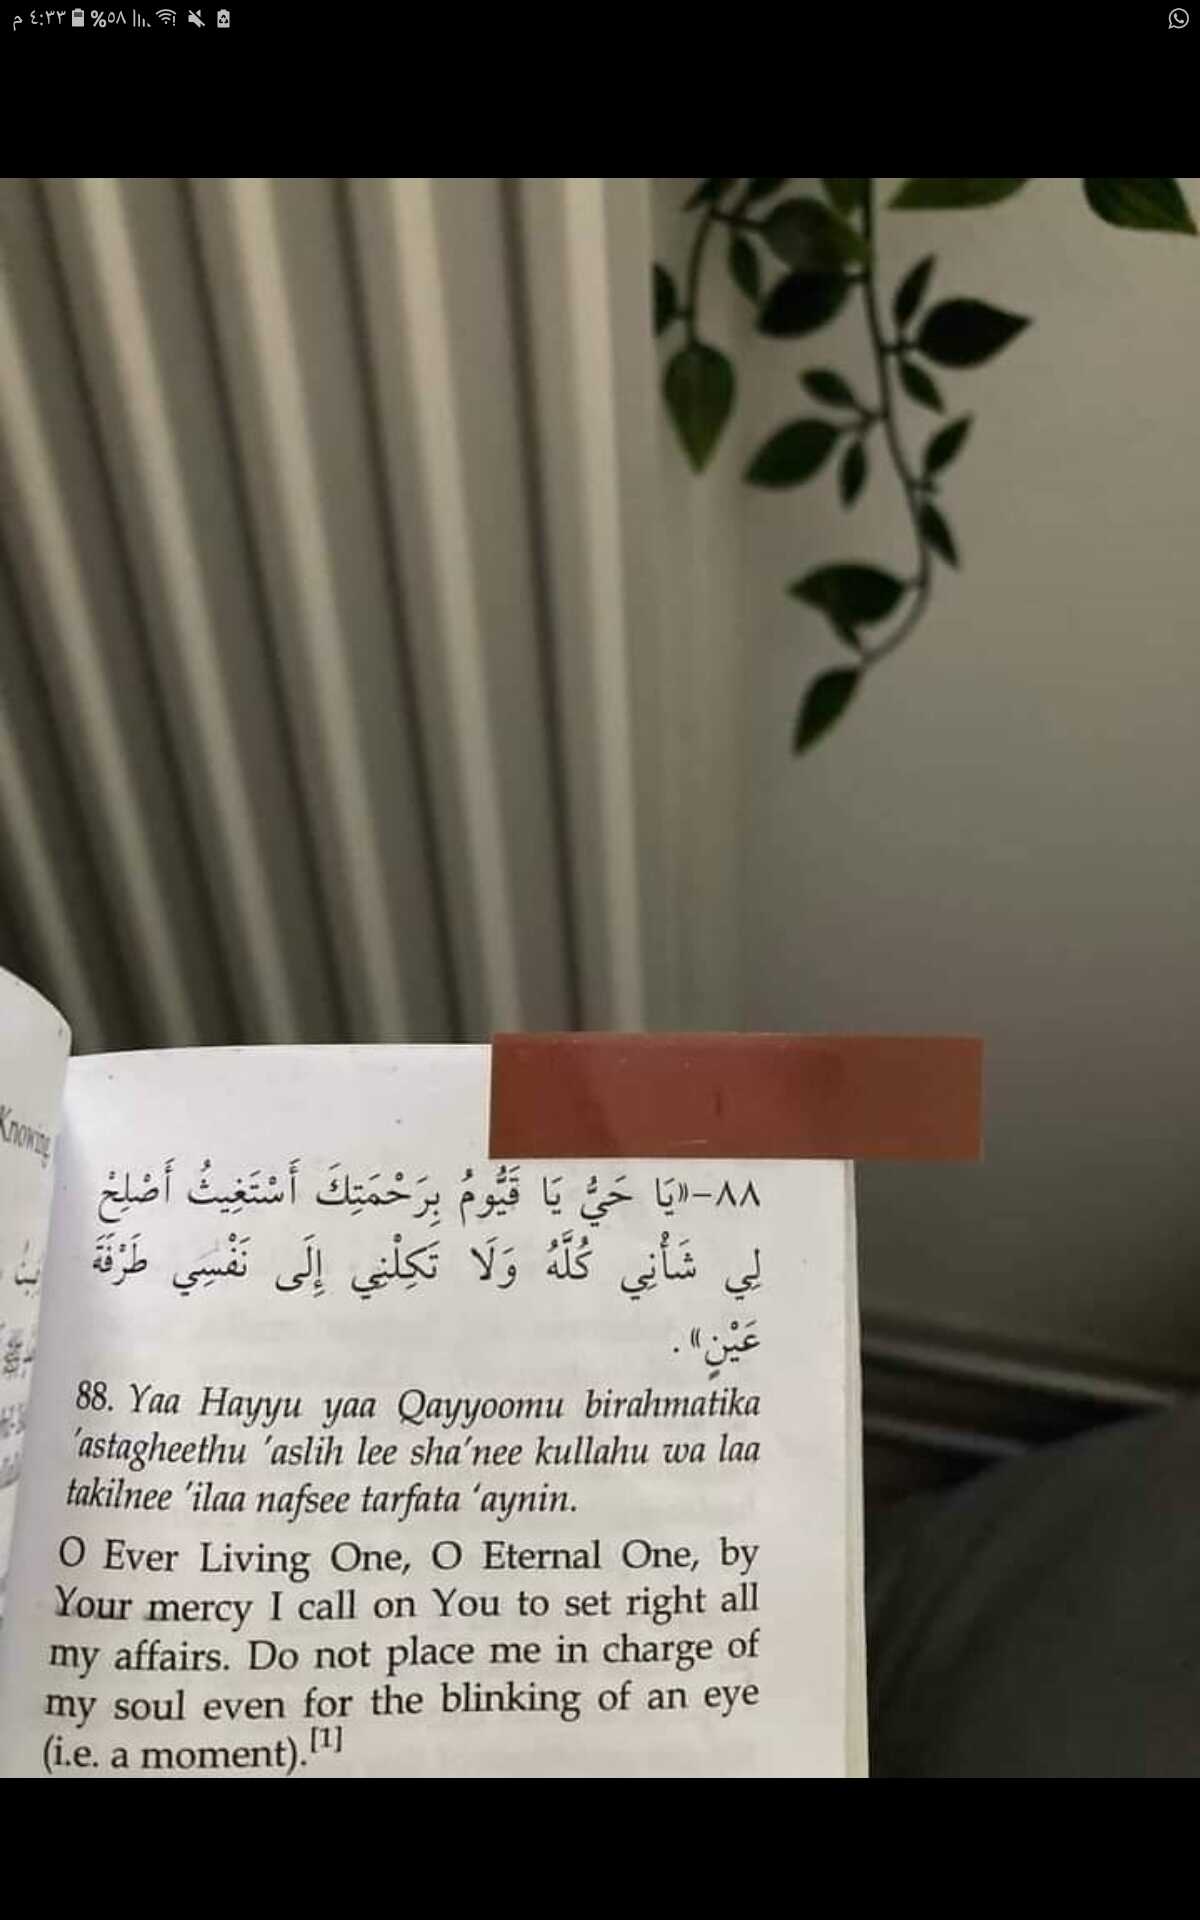 م ٤:٣٣ %٥٨
Knowing
٨٨-«يَا حَيُّ يَا قَيُّومُ بِرَحْمَتِكَ أَسْتَغِيثُ أَصْلِحْ
لِي شَأْنِي كُلَّهُ وَلَا تَكِلْنِي إِلَى نَفْسِي طَرْفَةَ
عَيْنٍ».
88. Yaa Hayyu yaa Qayyoomu birahmatika
'astagheethu 'aslih lee sha'nee kullahu wa laa
takilnee 'ilaa nafsee tarfata ‘aynin.
O Ever Living One, O Eternal One, by
Your mercy I call on You to set right all
my affairs. Do not place me in charge of
my soul even for the blinking of an eye
(i.e. a moment).[1]